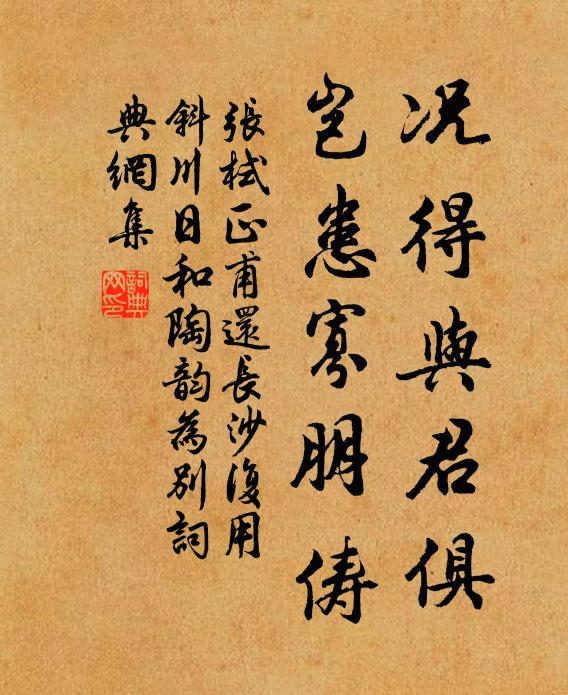 况得與君俱
豈患寡朋儔
張栻正甫還長沙復用
斜川日和陶韵為別詞
典網集
詞典網印